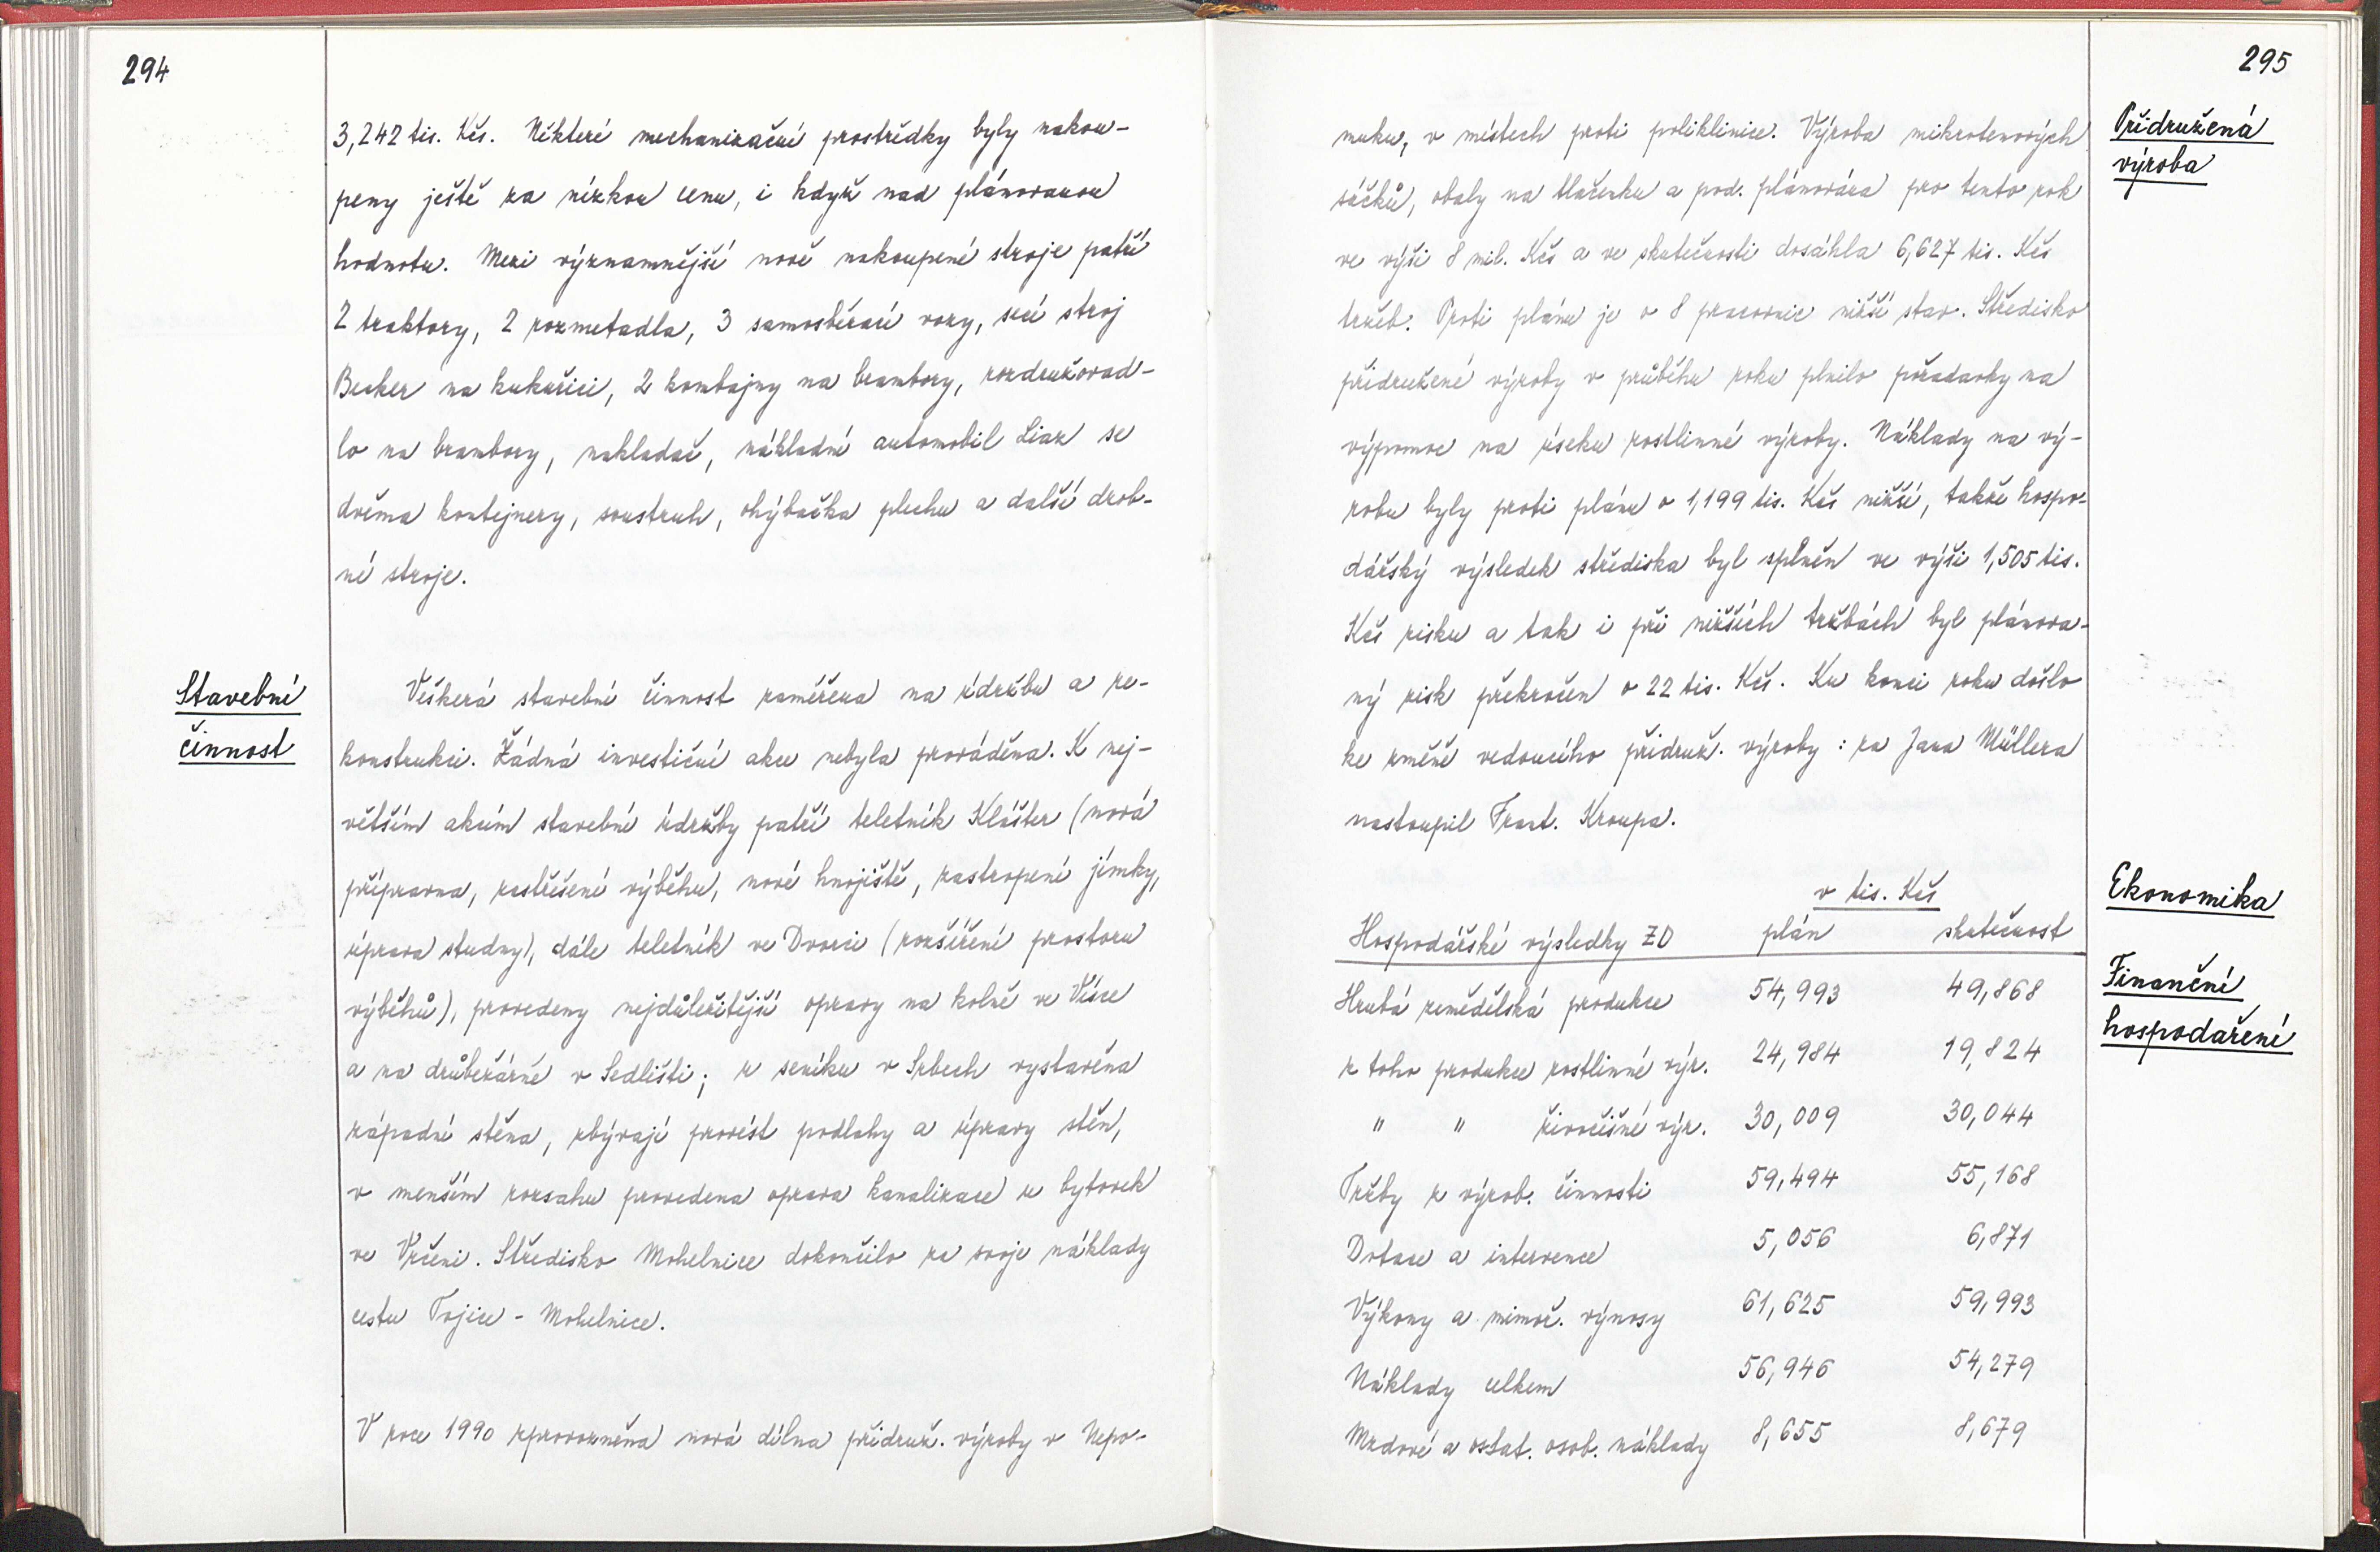 294
3,242 tis. Kčs. Některé mechanizační prostředky byly nakou-
peny ještě za nízkou cenu, i když nad plánovanou
hodnotu. Mezi významnější nově nakoupené stroje patří
2 traktory, 2 rozmetadla, 3 samosběrací vozy, secí stroj
Becker na kukuřici, 2 kombajny na brambory, rozdružovad-
lo na brambory, nakladač, nákladní automobil Liaz se
dvěma kontejnery, soustruh, ohýbačka plechu a další drob-
né stroje.
Stavební
činnost
Veškerá stavební činnost zaměřena na údržbu a re-
konstrukci. Žádná investiční akce nebyla prováděna. K nej-
větším akcím stavební údržby patří teletník Klášter (nová
přípravna, zastřešení výběhu, nové hnojiště, zastropení jímky,
úprava studny), dále teletník ve Dvorci (rozšíření prostoru
výběhů), provedeny nejdůležitější opravy na kolně ve Vísce
a na drůbežárně v Sedlišti; u seníku v Srbech vystavěna
západní stěna, zbývají provést podlahy a úpravy stěn,
v menším rozsahu provedena oprava kanalizace u bytovek
ve Vrčeni. Středisko Mohelnice dokončilo za svoje náklady
cestu Tojice - Mohelnice.
V roce 1990 zprovozněna nová dílna přidruž. výroby v Nepo-
295
Přidružená
výroba
muku, v místech proti poliklinice. Výroba mikrotenových
sáčků, obaly na tlačenku a pod. plánována pro tento rok
ve výši 8 mil. Kčs a ve skutečnosti dosáhla 6,627 tis. Kčs
tržeb. Proti plánu je o 8 pracovnic nižší stav. Středisko
přidružené výroby v průběhu roku plnilo požadavky na
výpomoc na úseku rostlinné výroby. Náklady na vý-
robu byly proti plánu o 1,199 tis. Kčs nižší, takže hospo-
dářský výsledek střediska byl splněn ve výši 1,505 tis.
Kčs zisku a tak i při nižších tržbách byl plánova-
ný zisk překročen o 22 tis. Kčs. Ku konci roku došlo
ke změně vedoucího přidruž. výroby : za Jana Müllera
nastoupil Frant. Kroupa.
Ekonomika
Finanční
hospodaření
v tis. Kčs
Hospodářské výsledky ZD plán skutečnost
Hrubá zemědělská produkce 54,993 49,868
z toho produkce rostlinné výr. 24,984 19,824
" " živočišné výr. 30,009 30,044
Tržby z výrob. činnosti 59,494 55,168
Dotace a intervence 5,056 6,871
Výkony a mimoř. výnosy 61,625 59,993
Náklady celkem 56,946 54,279
Mzdové a ostat. osob. náklady 8,655 8,679